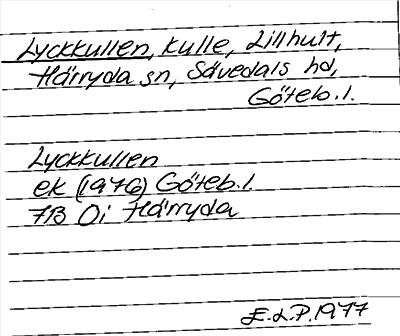 Lyckkullen, kulle, Lillhult,
Härryda sn, Sävedals hd,
Göteb. l.
Lyckkullen
ek (1976) Göteb. l.
7B 0i Härryda
E.L.P. 1977